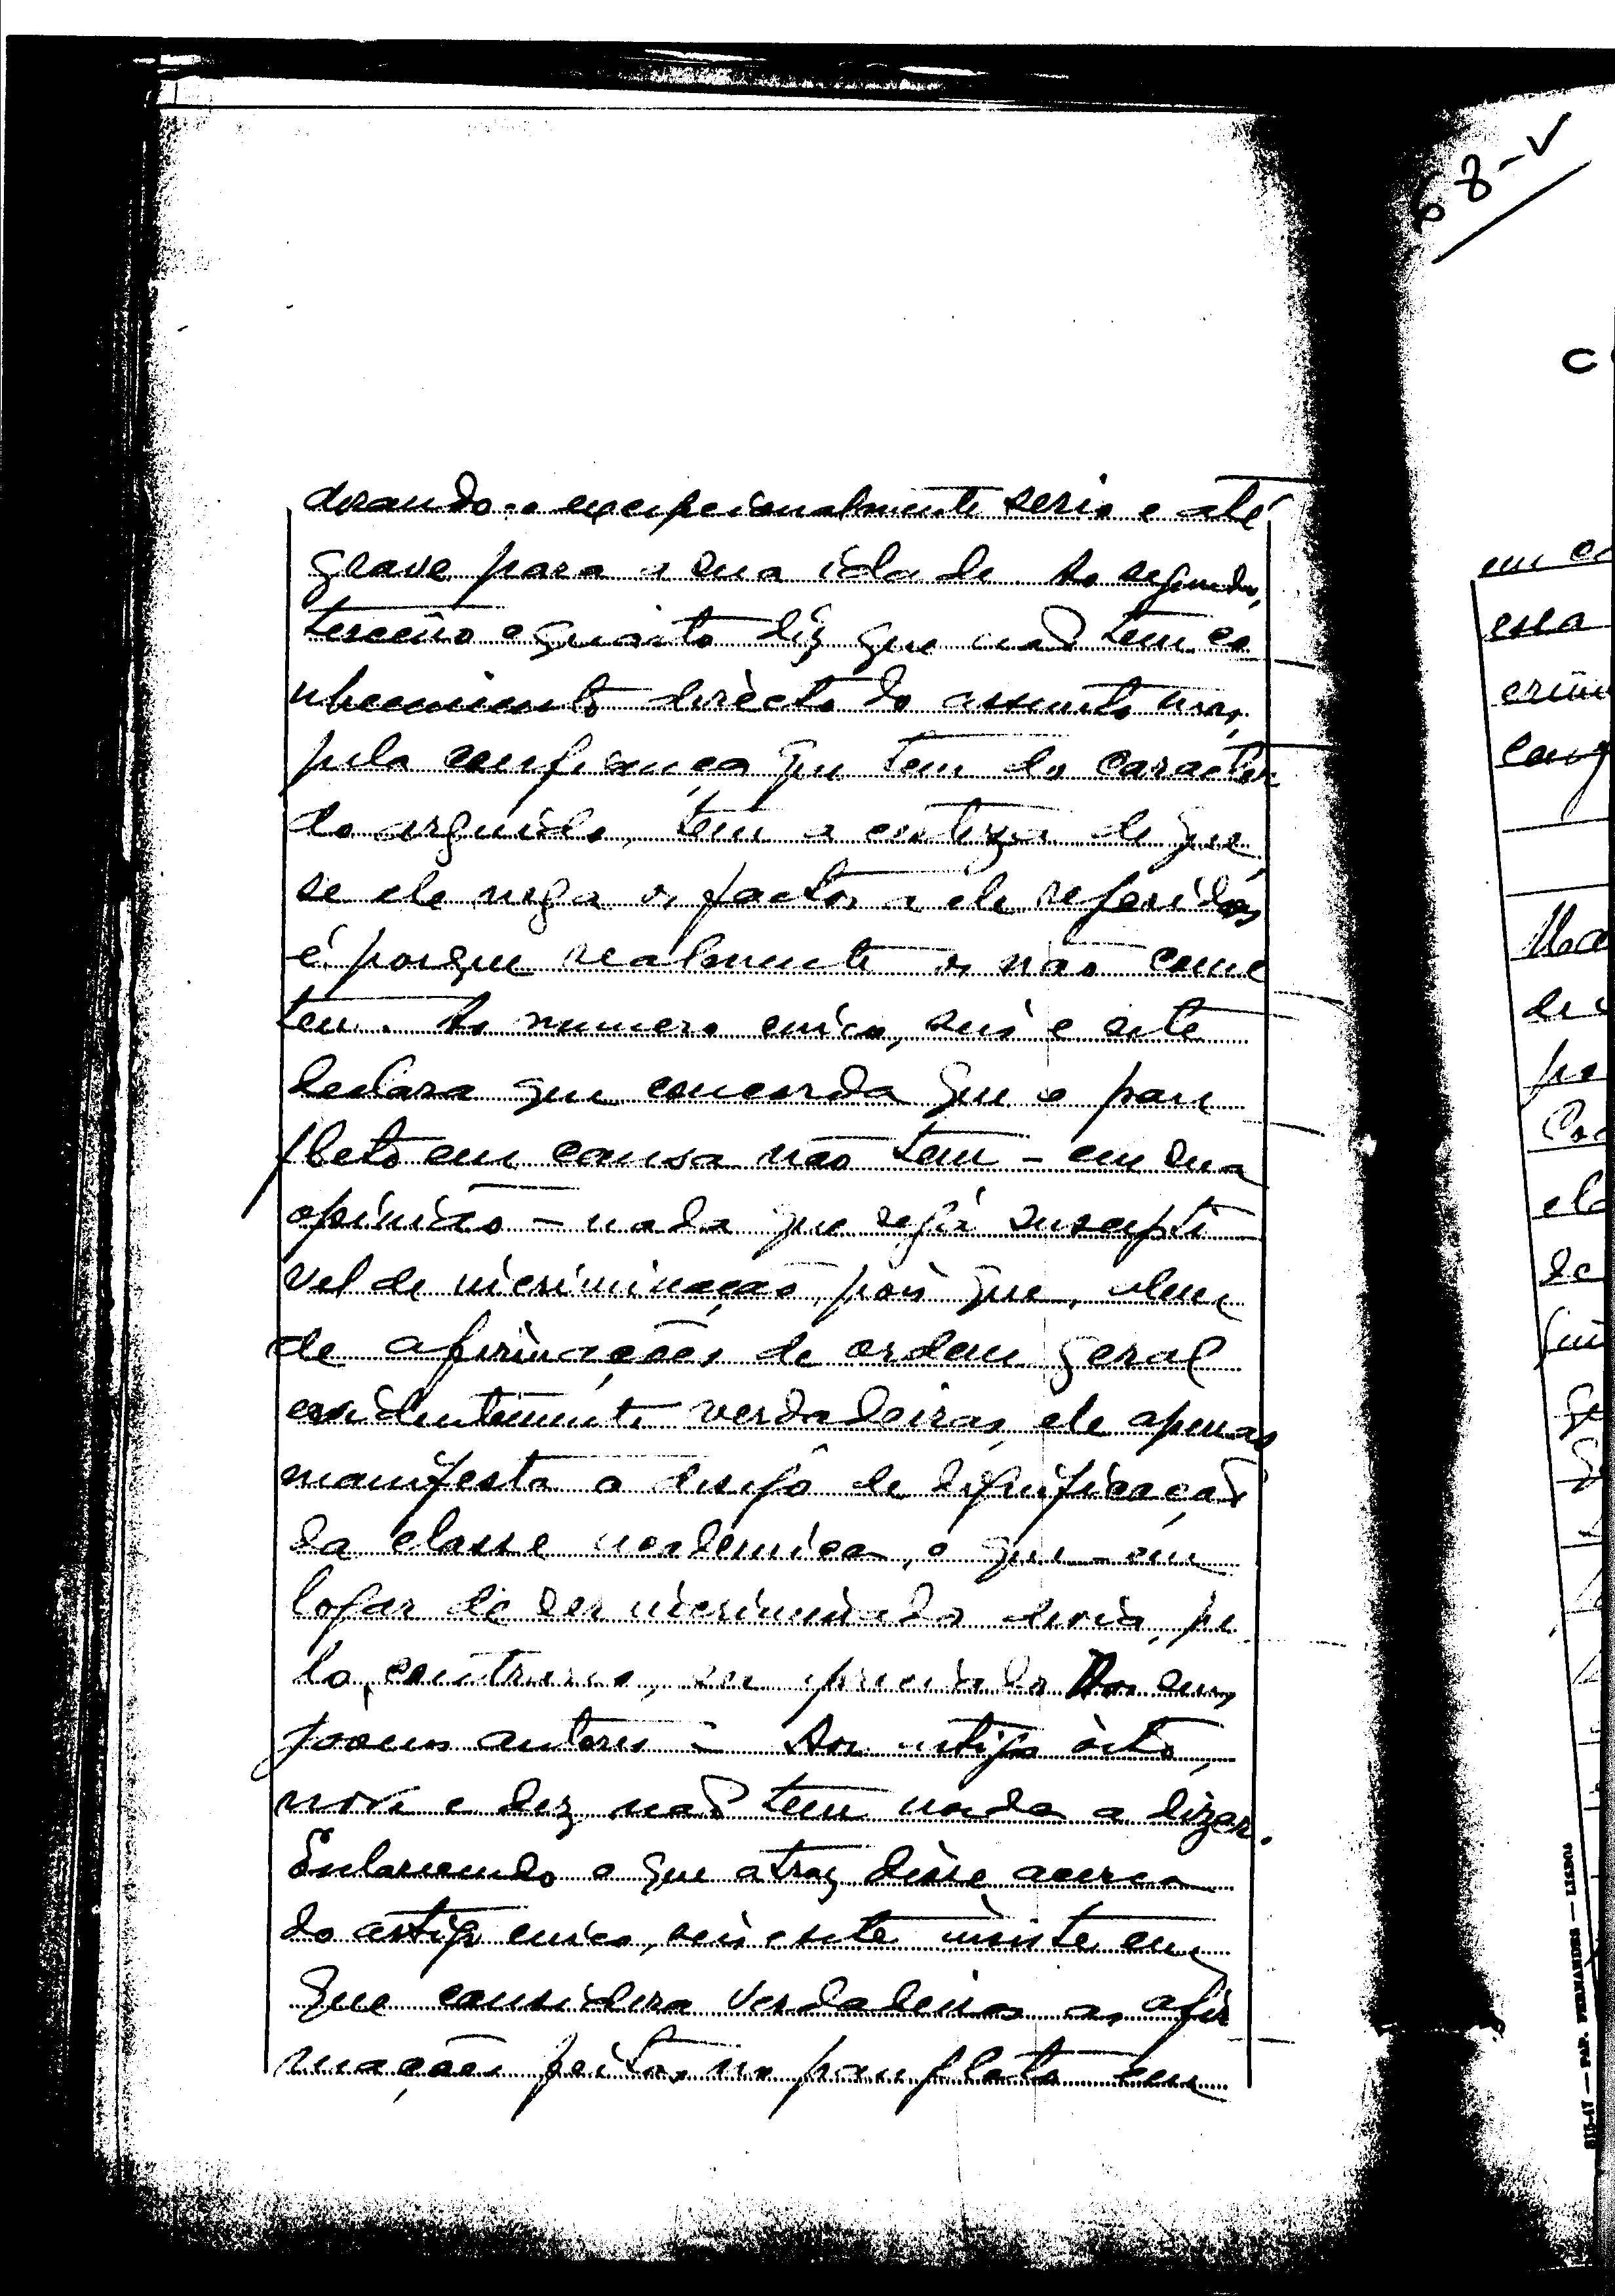 derando-o excepcionalmente serio e até
grave para a sua idade. Ao segundo,
terceiro e quarto diz que não tem co
nhecimento directo do assunto mas,
pela confiança que tem do caracter
do arguido, tem a certeza de que,
se ele nega os factos a ele referidos,
é porque realmente os não come
teu. Ao numero cinco, seis e sete
declara que concorda que o pan
fleto em causa não tem - em sua
opinião - nada que seja suscepti
vel de incriminação, pois que, alem
de afirmações de ordem geral
evidentemente verdadeiras, ele apenas
manifesta o desejo de dignificação
da classe academica, o que em
logar de ser incriminado devia, pe
lo contrario, ser apreciado dos seus
jovens autores - Aos artigos oito,
nove e dez, não tem nada a dizer.
Esclarecendo o que atraz disse acerca
do artigo cinco, seis e sete insiste em
que considera verdadeiras as afir
mações feitas no panfleto em
68-V
C
em
essa
Maa
de
po
ela
de
815-47 — PAP. FERNANDES — LISBOA